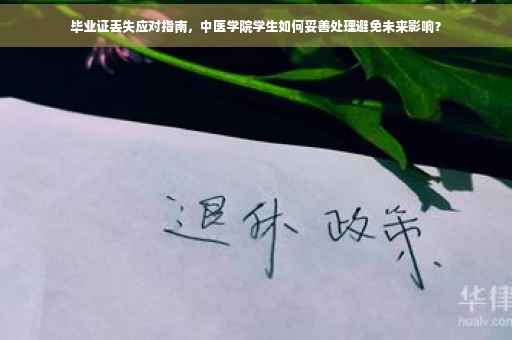 毕业证丢失应对指南，中医学院学生如何妥善处理避免未来影响？
退休 政策
华律
hualv.com